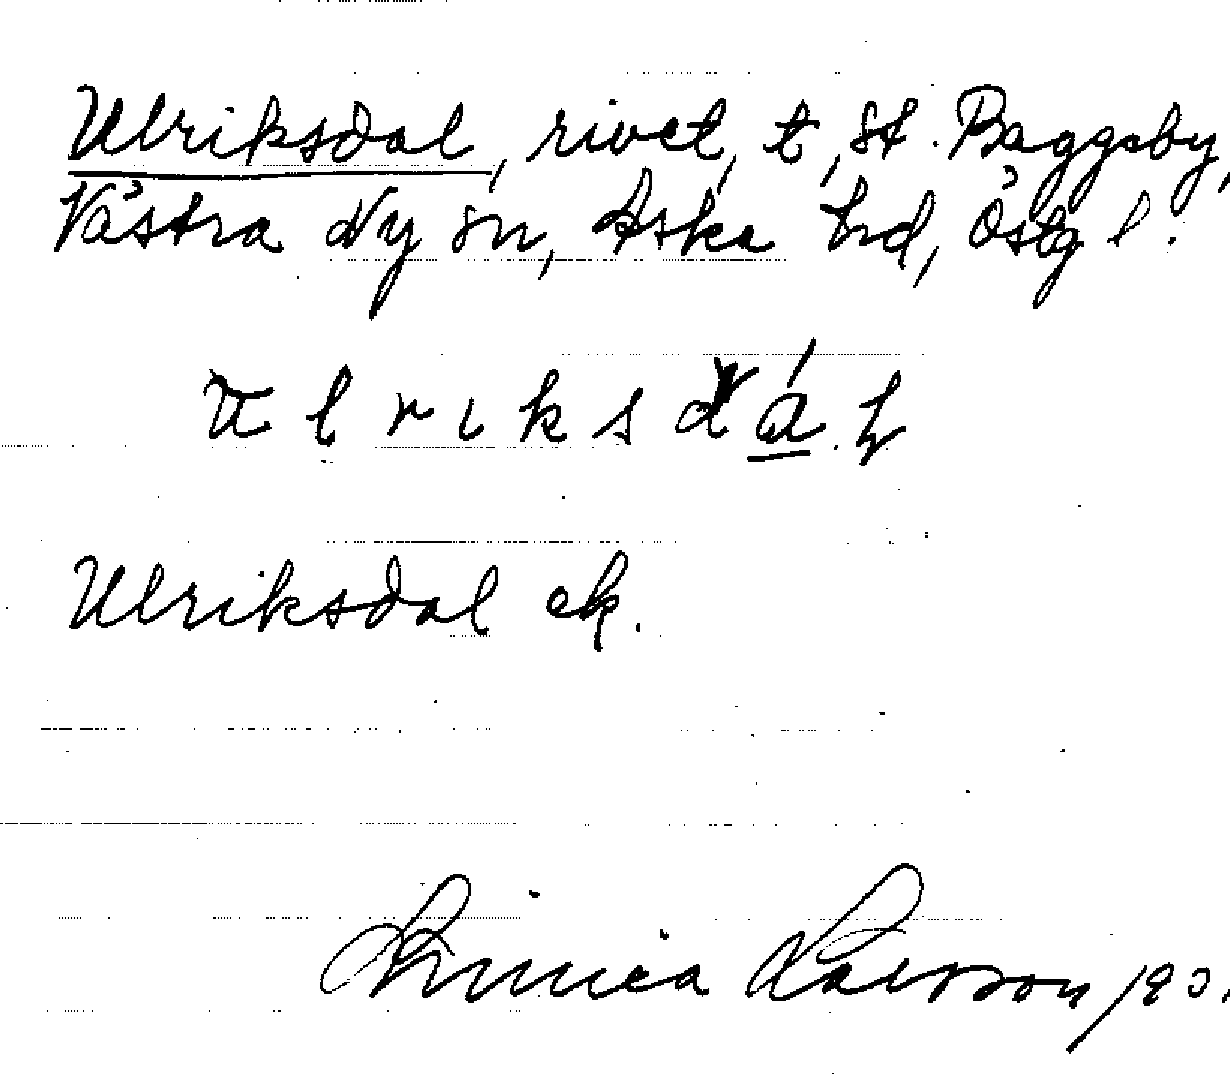 Ulriksdal, rivet, t, St. Baggeby,
Västra Ny sn, Aska hd, Östg l.
Ulriksdal ek.
Linnea Larsson 190